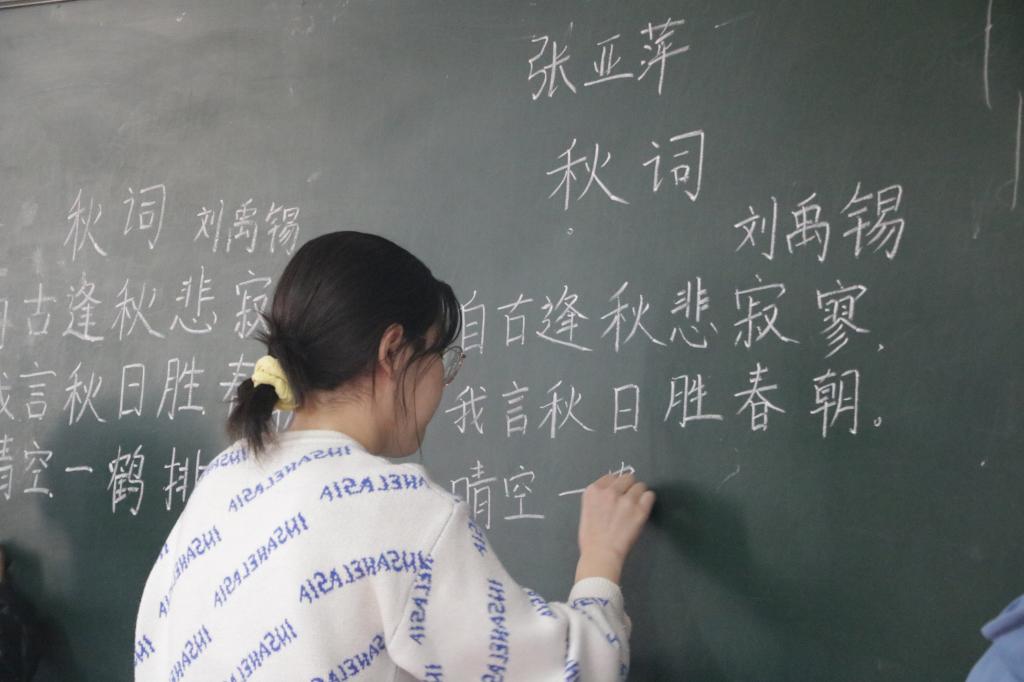 秋词 刘禹锡
古逢秋悲寂
我言秋日胜春
晴空一鹤排
张亚萍
秋词
刘禹锡
自古逢秋悲寂寥,
我言秋日胜春朝。
晴空一